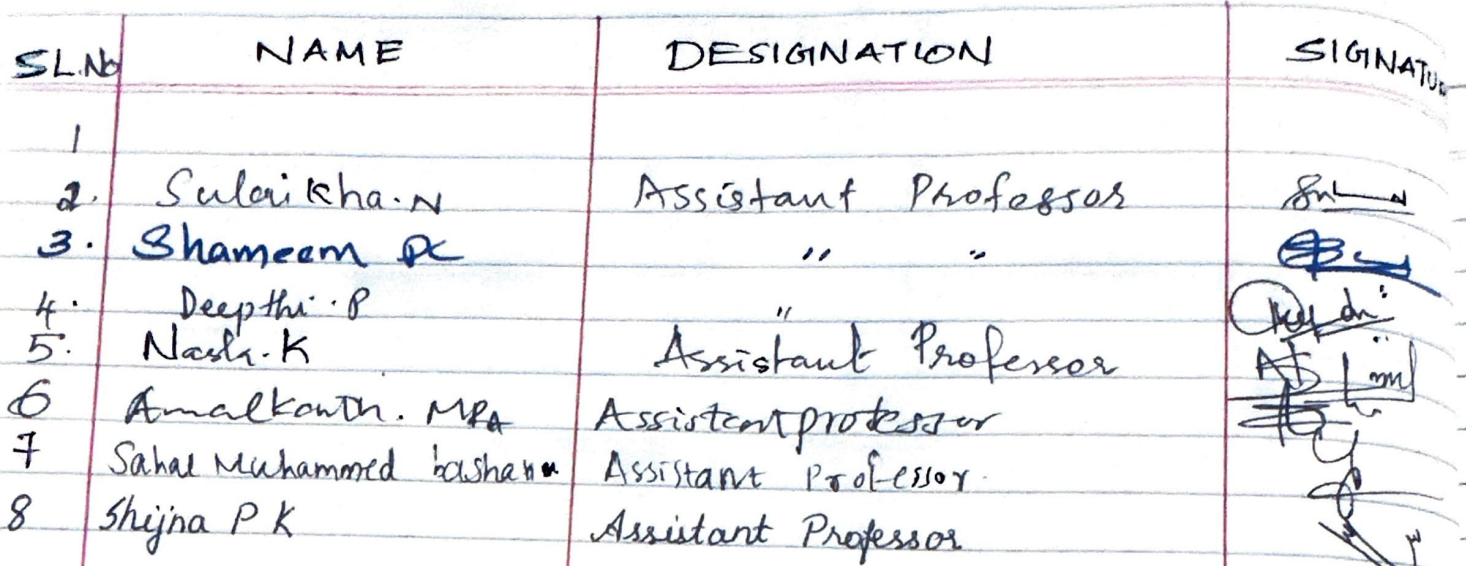 SL.No NAME DESIGNATION SIGINATU
1
2. Sulaikha.N Assistant Professor
3. Shameem PC " "
4. Deepthi.P "
5. Nasla.K Assistant Professor
6 Amalkanth. Assistant professor
7 Sahal Muhammed Assistant Professor.
8 Shijna P K Assistant Professor